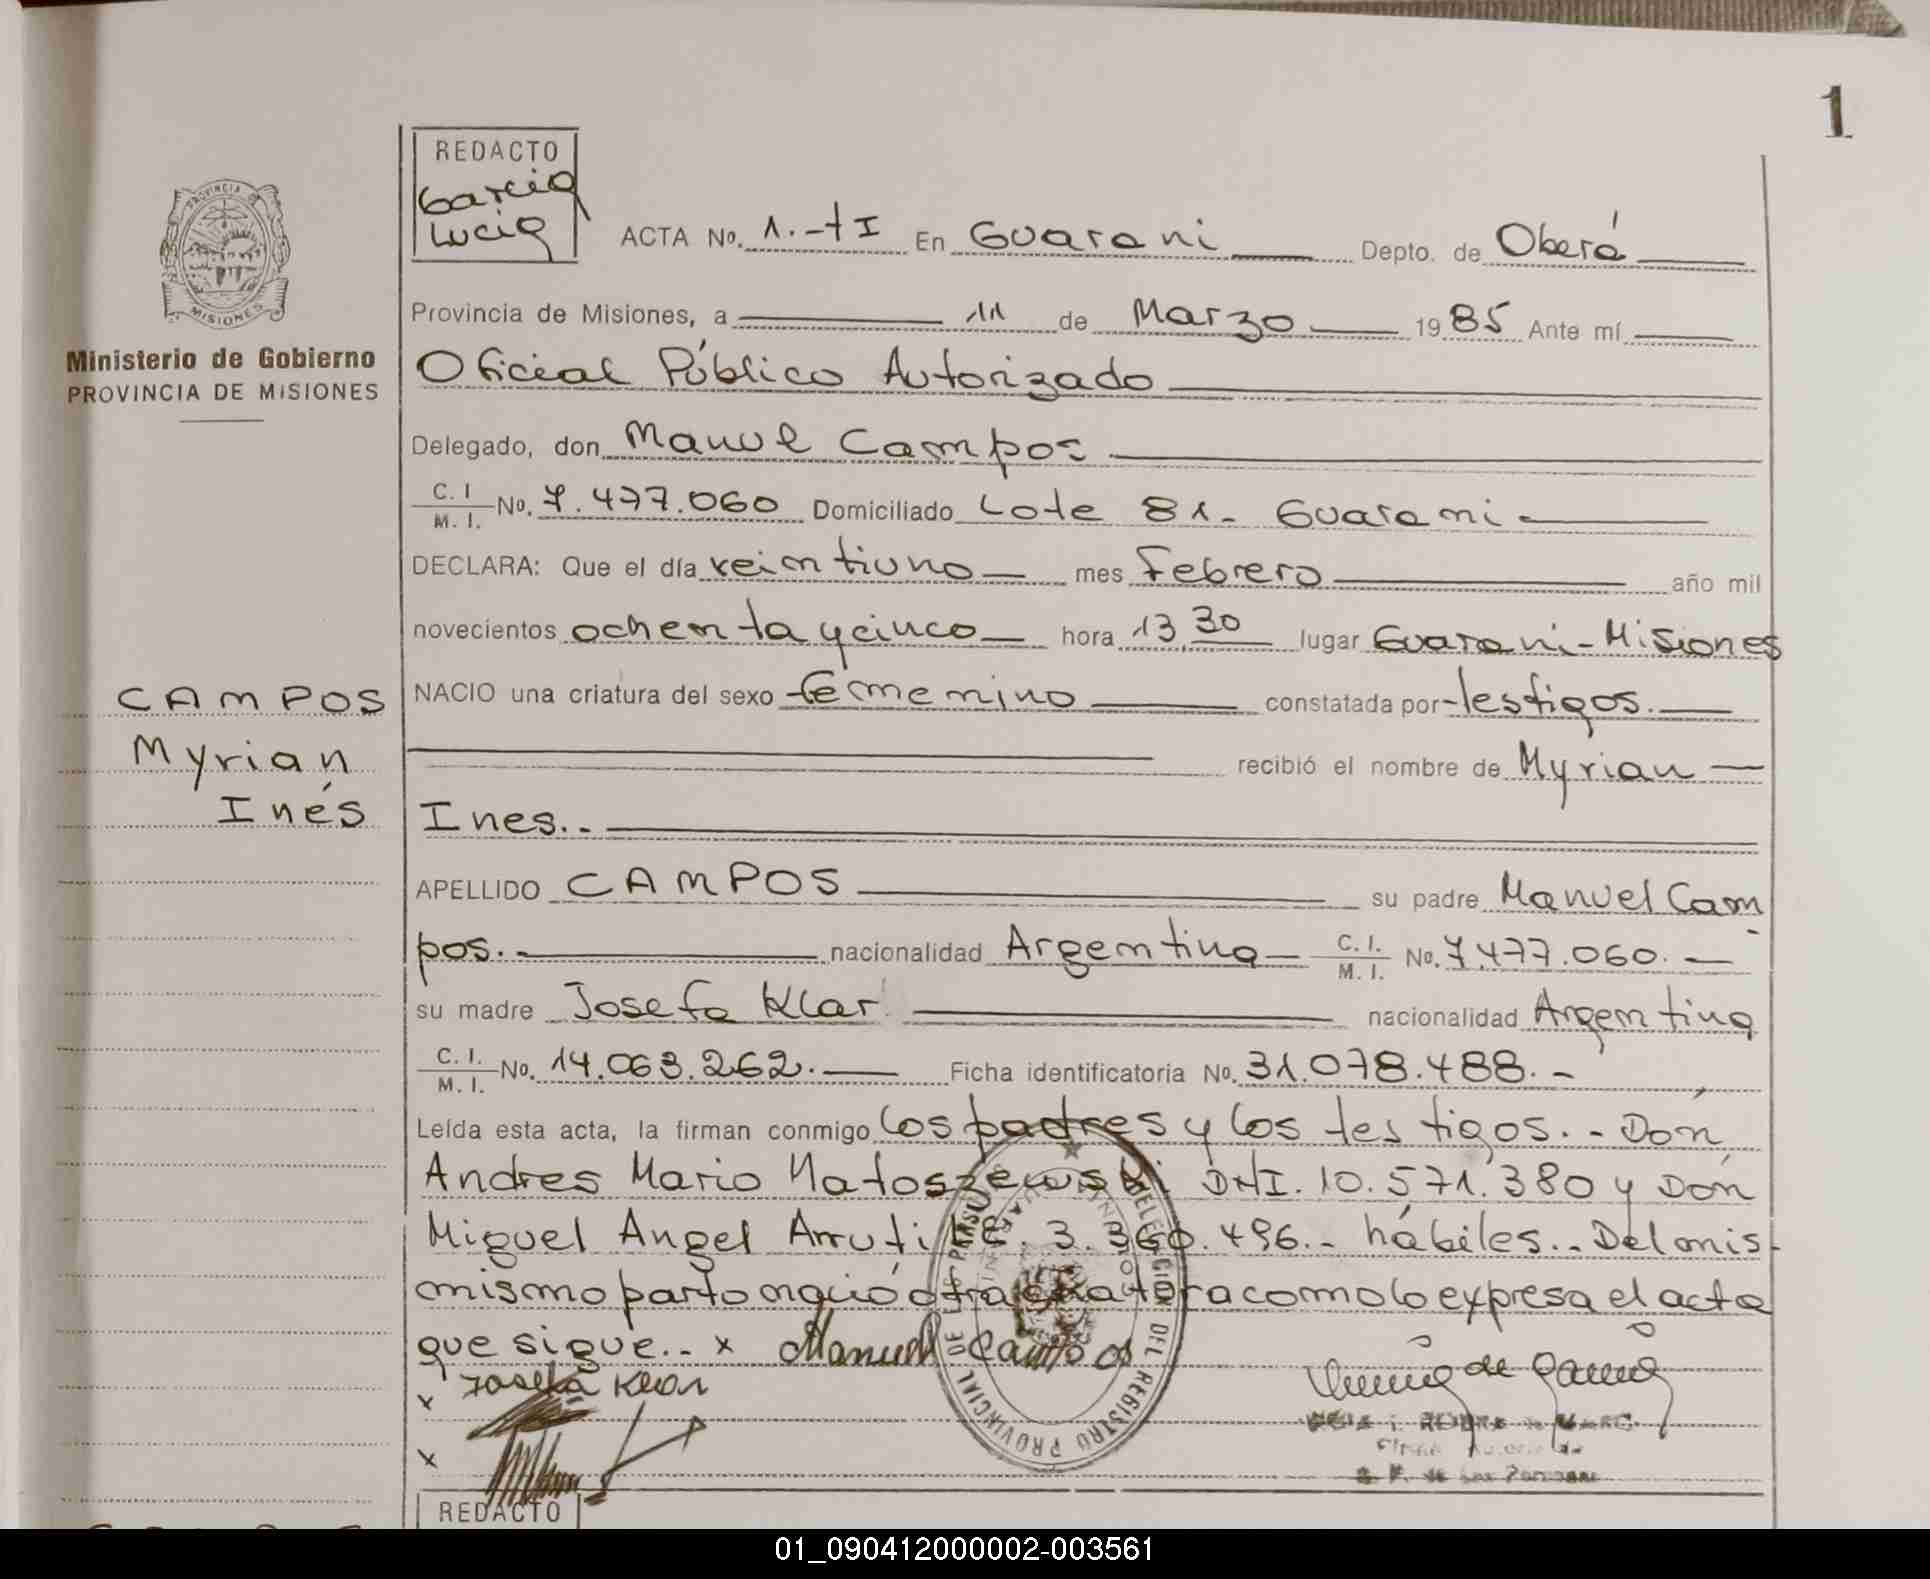 1
REDACTO
Garcia
Lucia
ACTA No. 1.-tI En Guarani Depto. de Oberá
PROVINCIA DE
MISIONES
Ministerio de Gobierno
PROVINCIA DE MISIONES
Provincia de Misiones, a 11 de Marzo 1985 Ante mí
Oficial Público Autorizado
Delegado, don Manuel Campos
C. I. / M. I. No. 7.477.060 Domiciliado Lote 81- Guarani-
DECLARA: Que el día veintiuno mes Febrero año mil
novecientos ochenta y cinco hora 13,30 lugar Guarani-Misiones
CAMPOS
Myrian
Inés
NACIO una criatura del sexo femenino constatada por testigos.
recibió el nombre de Myrian
Ines..-
APELLIDO CAMPOS su padre Manuel Cam
pos.- nacionalidad Argentina C. I. / M. I. No. 7.477.060.-
su madre Josefa Klar nacionalidad Argentina
C. I. / M. I. No. 14.063.262.- Ficha identificatoria No. 31.078.488.-
Leída esta acta, la firman conmigo los padres y los testigos.- Don
Andres Mario Matoszewski DNI. 10.571.380 y Don
Miguel Angel Arruti LE. 3.360.496.- hábiles.. Del mis-
mismo parto nació otra criatura como lo expresa el acta
que sigue.. x Manuel Campos
x Josefa Klar
x
DELEGACION DEL REGISTRO PROVINCIAL DE LAS PERSONAS
GUARANI
REDACTO
01_090412000002-003561